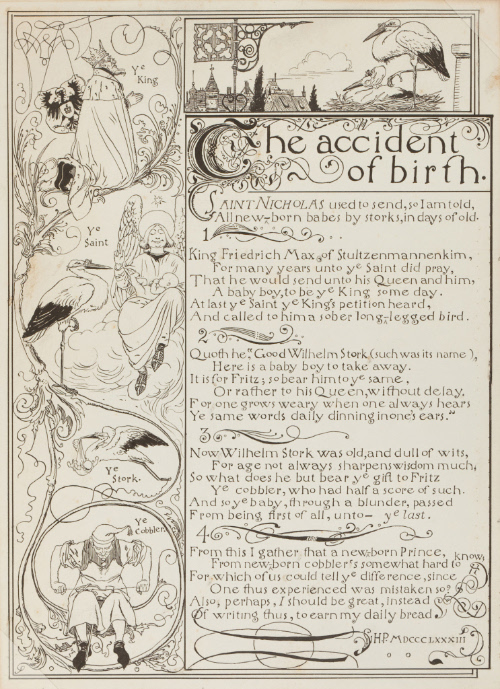 Yᵉ King
Yᵉ Saint
Yᵉ Stork.
Yᵉ Cobbler.
The accident
of birth.
SAINT NICHOLAS used to send, so I am told,
All new-born babes by storks, in days of old.
1
King Friedrich Max, of Stultzenmannenkim,
For many years unto yᵉ Saint did pray,
That he would send unto his Queen and him,
A baby boy, to be yᵉ King some day.
At last yᵉ Saint yᵉ King's petition heard,
And called to him a sober long-legged bird.
2
Quoth he, "Good Wilhelm Stork (such was its name),
Here is a baby boy to take away.
It is for Fritz; so bear him to yᵉ same,
Or rather to his Queen, without delay.
For one grows weary when one always hears
Yᵉ same words daily dinning in one's ears."
3
Now Wilhelm Stork was old, and dull of wits,
For age not always sharpens wisdom much,
So what does he but bear yᵉ gift to Fritz
Yᵉ cobbler, who had half a score of such.
And so yᵉ baby, through a blunder, passed
From being first of all, unto- yᵉ last.
4
From this I gather that a new-born Prince,
From new-born cobbler's somewhat hard to know;
For which of us could tell yᵉ difference, since
One thus experienced was mistaken so?
Also, perhaps, I should be great, instead
Of writing thus, to earn my daily bread.
HP. MDCCCLXXXIII